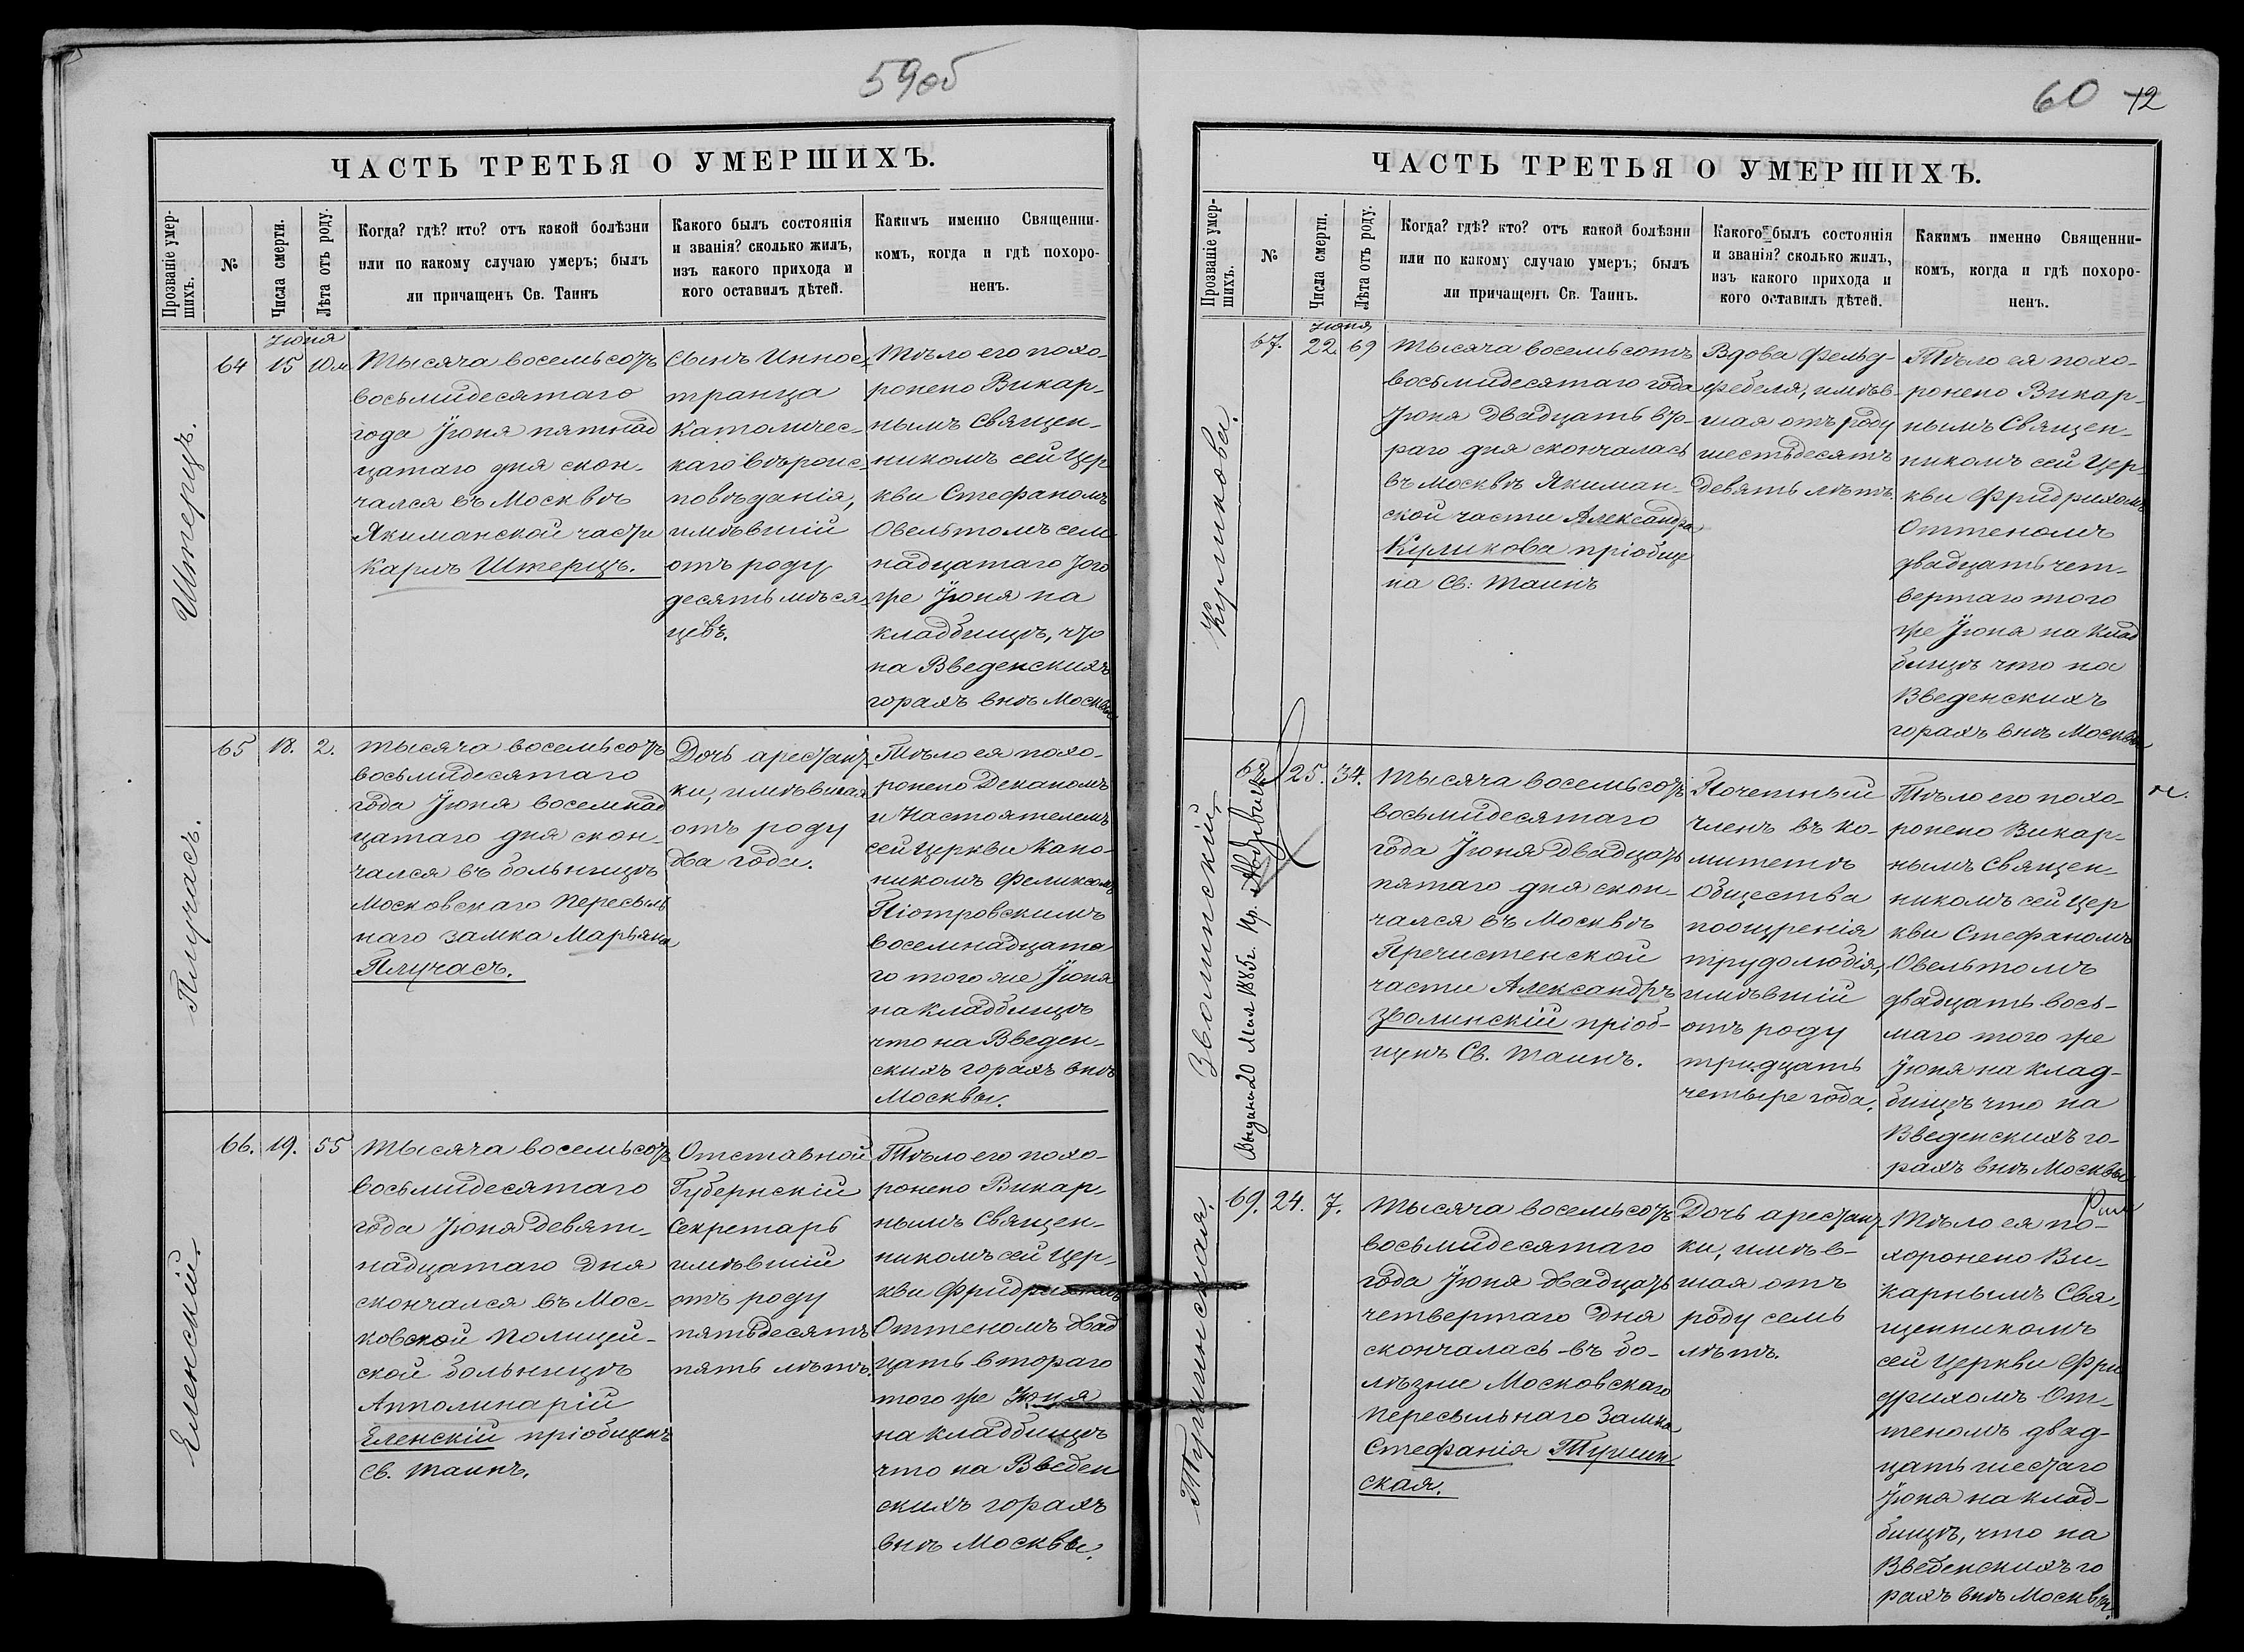 59об
ЧАСТЬ ТРЕТЬЯ О УМЕРШИХЪ.
Прозваніе умер-
шихъ.
№
Числа смерти.
Лѣта отъ роду.
Когда? гдѣ? кто? отъ какой болѣзни
или по какому случаю умеръ; былъ
ли причащенъ Св. Таинъ
Какого былъ состоянія
и званія? сколько жилъ,
изъ какого прихода и
кого оставилъ дѣтей.
Какимъ именно Священни-
комъ, когда и гдѣ похоро-
ненъ.
Штерцъ.
64
Іюня
15
10 м
Тысяча восемьсотъ
восьмидесятаго
года Іюня пятнад
цатаго дня скон-
чался въ Москвѣ
Якиманской части
Карлъ Штерцъ.
Сынъ Иннос-
транца
Католичес-
каго вѣроис-
повѣданія,
имѣвшій
отъ роду
десять мѣся-
цевъ.
Тѣло его похо-
ронено Викар-
нымъ Священ-
никомъ сей Цер
кви Стефаномъ
Овельтомъ сем
надцатаго того
же Іюня на
кладбищѣ, что
на Введенскихъ
горахъ внѣ Москвы
Плучасъ.
65
18.
2.
Тысяча восемьсотъ
восьмидесятаго
года Іюня восемнад
цатаго дня скон-
чался въ больницѣ
Московскаго Пересыль
наго замка Марьяна
Плучасъ.
Дочь арестант-
ки, имѣвшая
отъ роду
два года.
Тѣло ея похо-
ронено Деканомъ
и Настоятелемъ
сей Церкви Кано-
никомъ Феликсомъ
Піотровскимъ
восемнадцата
го того же Іюня
на кладбищѣ
что на Введен-
скихъ горахъ внѣ
Москвы.
Еленскій.
66.
19.
55
Тысяча восемьсотъ
восьмидесятаго
года Іюня девят-
надцатаго дня
скончался въ Мос-
ковской Полицей-
ской больницѣ
Апполинарій
Еленскій пріобщенъ
Св. Таинъ.
Отставной
Губернскій
Секретарь
имѣвшій
отъ роду
пятьдесятъ
пять лѣтъ.
Тѣло его похо-
ронено Викар-
нымъ Священ-
никомъ сей Цер-
кви Фридрихомъ
Оттеномъ двад
цать втораго
того же Іюня
на кладбищѣ
что на Введен
скихъ горахъ
внѣ Москвы.
60 12
ЧАСТЬ ТРЕТЬЯ О УМЕРШИХЪ.
Прозваніе умер-
шихъ.
№
Числа смерти.
Лѣта отъ роду.
Когда? гдѣ? кто? отъ какой болѣзни
или по какому случаю умеръ; былъ
ли причащенъ Св. Таинъ.
Какого былъ состоянія
и званія? сколько жилъ,
изъ какого прихода и
кого оставилъ дѣтей.
Какимъ именно Священни-
комъ, когда и гдѣ похоро-
ненъ.
Куликова.
67.
Іюня
22.
69
Тысяча восемьсотъ
восьмидесятаго года
Іюня двадцать вто-
раго дня скончалась
въ Москвѣ Якиман-
ской части Александра
Куликова пріобще
на Св: Таинъ
Вдова Фельд-
фебеля, имѣв-
шая отъ роду
шестьдесятъ
девять лѣтъ.
Тѣло ея похо-
ронено Викар-
нымъ Священ-
никомъ сей Цер-
кви Фридрихомъ
Оттеномъ
двадцать чет-
вертаго того
же Іюня на клад
бищѣ что на
Введенскихъ
горахъ внѣ Москвы
Зволинскій.
68
Выдано 20 Мая 1885г.
25.
34.
Тысяча восемьсотъ
восьмидесятаго
года Іюня двадцать
пятаго дня скон-
чался въ Москвѣ
Пречистенской
части Александръ
Зволинскій пріоб-
щенъ Св. Таинъ.
Почетный
Членъ въ ко-
митетѣ
Общества
поощренія
трудолюбія,
имѣвшій
отъ роду
тридцать
четыре года.
Тѣло его похо-
ронено Викар-
нымъ Священ-
никомъ сей Цер
кви Стефаномъ
Овельтомъ
двадцать вось-
маго того же
Іюня на клад-
бищѣ что на
Введенскихъ го-
рахъ внѣ Москвы
Туминская.
69.
24.
7.
Тысяча восемьсотъ
восьмидесятаго
года Іюня двадцать
четвертаго дня
скончалась въ бо-
лѣзни Московскаго
Пересыльнаго Замка
Стефанія Тумин
ская.
Дочь арестант-
ки, имѣв-
шая отъ
роду семь
лѣтъ.
Тѣло ея по-
хоронено Ви-
карнымъ Свя-
щенникомъ
сей Церкви Фри
дрихомъ От-
теномъ двад-
цать шестаго
Іюня на клад-
бищѣ, что на
Введенскихъ го
рахъ внѣ Москвы.